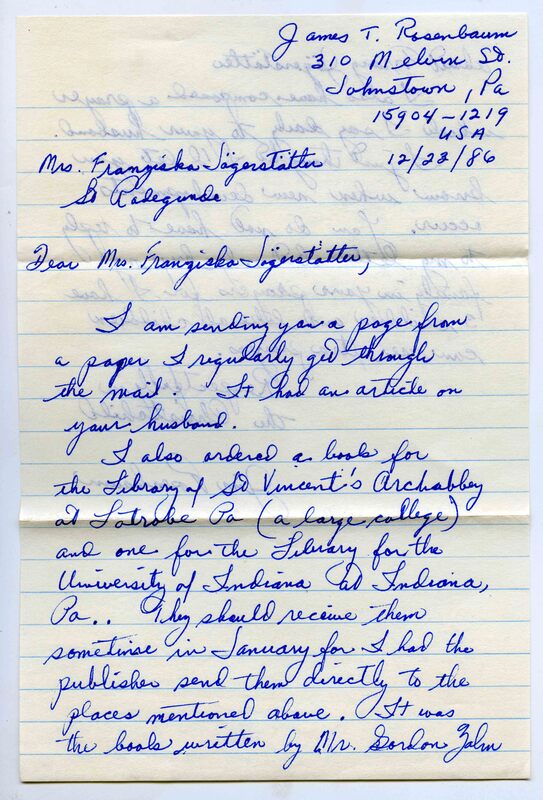 James T. Rosenbaum
310 Melvin St.
Johnstown, Pa
15904-1219
USA
Mrs. Franziska Jägerstätter
12/28/86
St Radegunde
Dear Mrs. Franziska Jägerstatter,
I am sending you a page from
a paper I regularly get through
the mail. It had an article on
your husband.
I also ordered a book for
the Library of St Vincent's Archabbey
at Latrobe Pa (a large college)
and one for the Library for the
University of Indiana at Indiana,
Pa.. They should receive them
sometime in January for I had the
publisher send them directly to the
places mentioned above. It was
the book written by Mr. Gordon Zahn